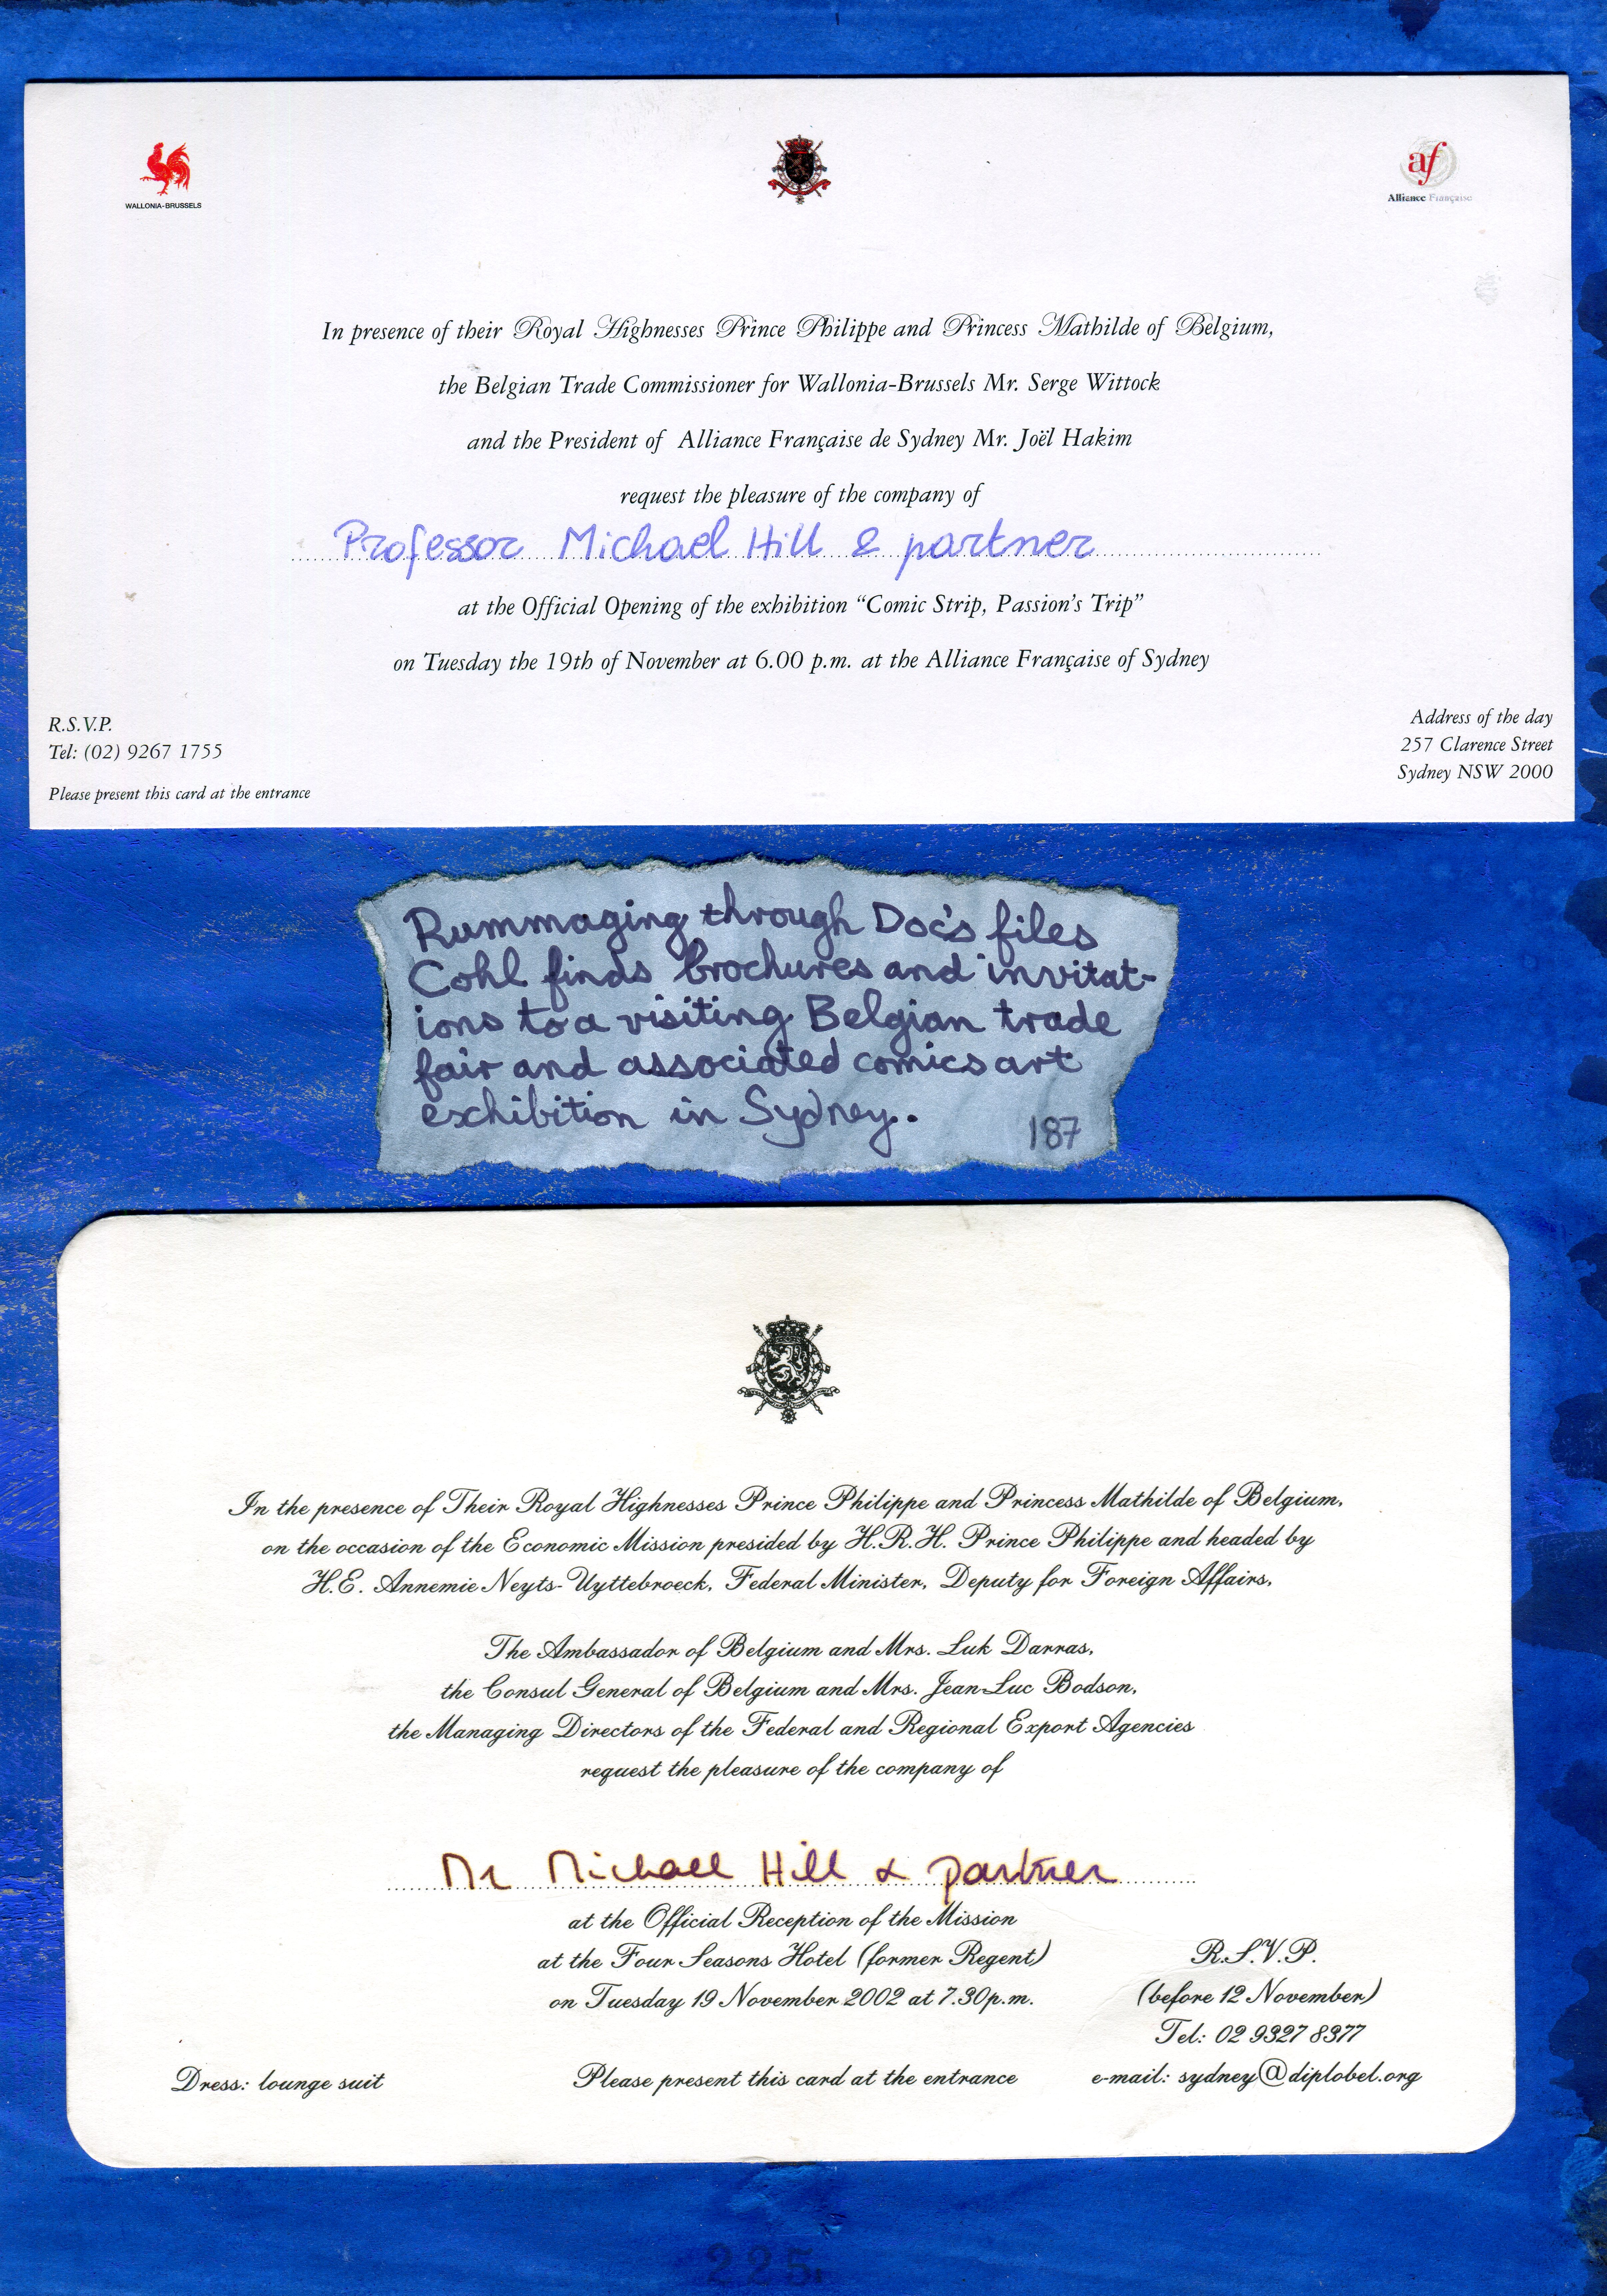 WALLONIA-BRUSSELS
af
Alliance Française
In presence of their Royal Highnesses Prince Philippe and Princess Mathilde of Belgium,
the Belgian Trade Commissioner for Wallonia-Brussels Mr. Serge Wittock
and the President of Alliance Française de Sydney Mr. Joël Hakim
request the pleasure of the company of
Professor Michael Hill & partner
at the Official Opening of the exhibition “Comic Strip, Passion’s Trip”
on Tuesday the 19th of November at 6.00 p.m. at the Alliance Française of Sydney
R.S.V.P.
Tel: (02) 9267 1755
Please present this card at the entrance
Address of the day
257 Clarence Street
Sydney NSW 2000
Rummaging through Doc's files
Cohl finds brochures and invitat-
ions to a visiting Belgian trade
fair and associated comics art
exhibition in Sydney.
187
In the presence of Their Royal Highnesses Prince Philippe and Princess Mathilde of Belgium,
on the occasion of the Economic Mission presided by H.R.H. Prince Philippe and headed by
H.E. Annemie Neyts-Uyttebroeck, Federal Minister, Deputy for Foreign Affairs,
The Ambassador of Belgium and Mrs. Luk Darras,
the Consul General of Belgium and Mrs. Jean-Luc Bodson,
the Managing Directors of the Federal and Regional Export Agencies
request the pleasure of the company of
Mr Michael Hill & partner
at the Official Reception of the Mission
at the Four Seasons Hotel (former Regent)
on Tuesday 19 November 2002 at 7.30p.m.
R.S.V.P.
(before 12 November)
Tel: 02 9327 8377
e-mail: sydney@diplobel.org
Dress: lounge suit
Please present this card at the entrance
225